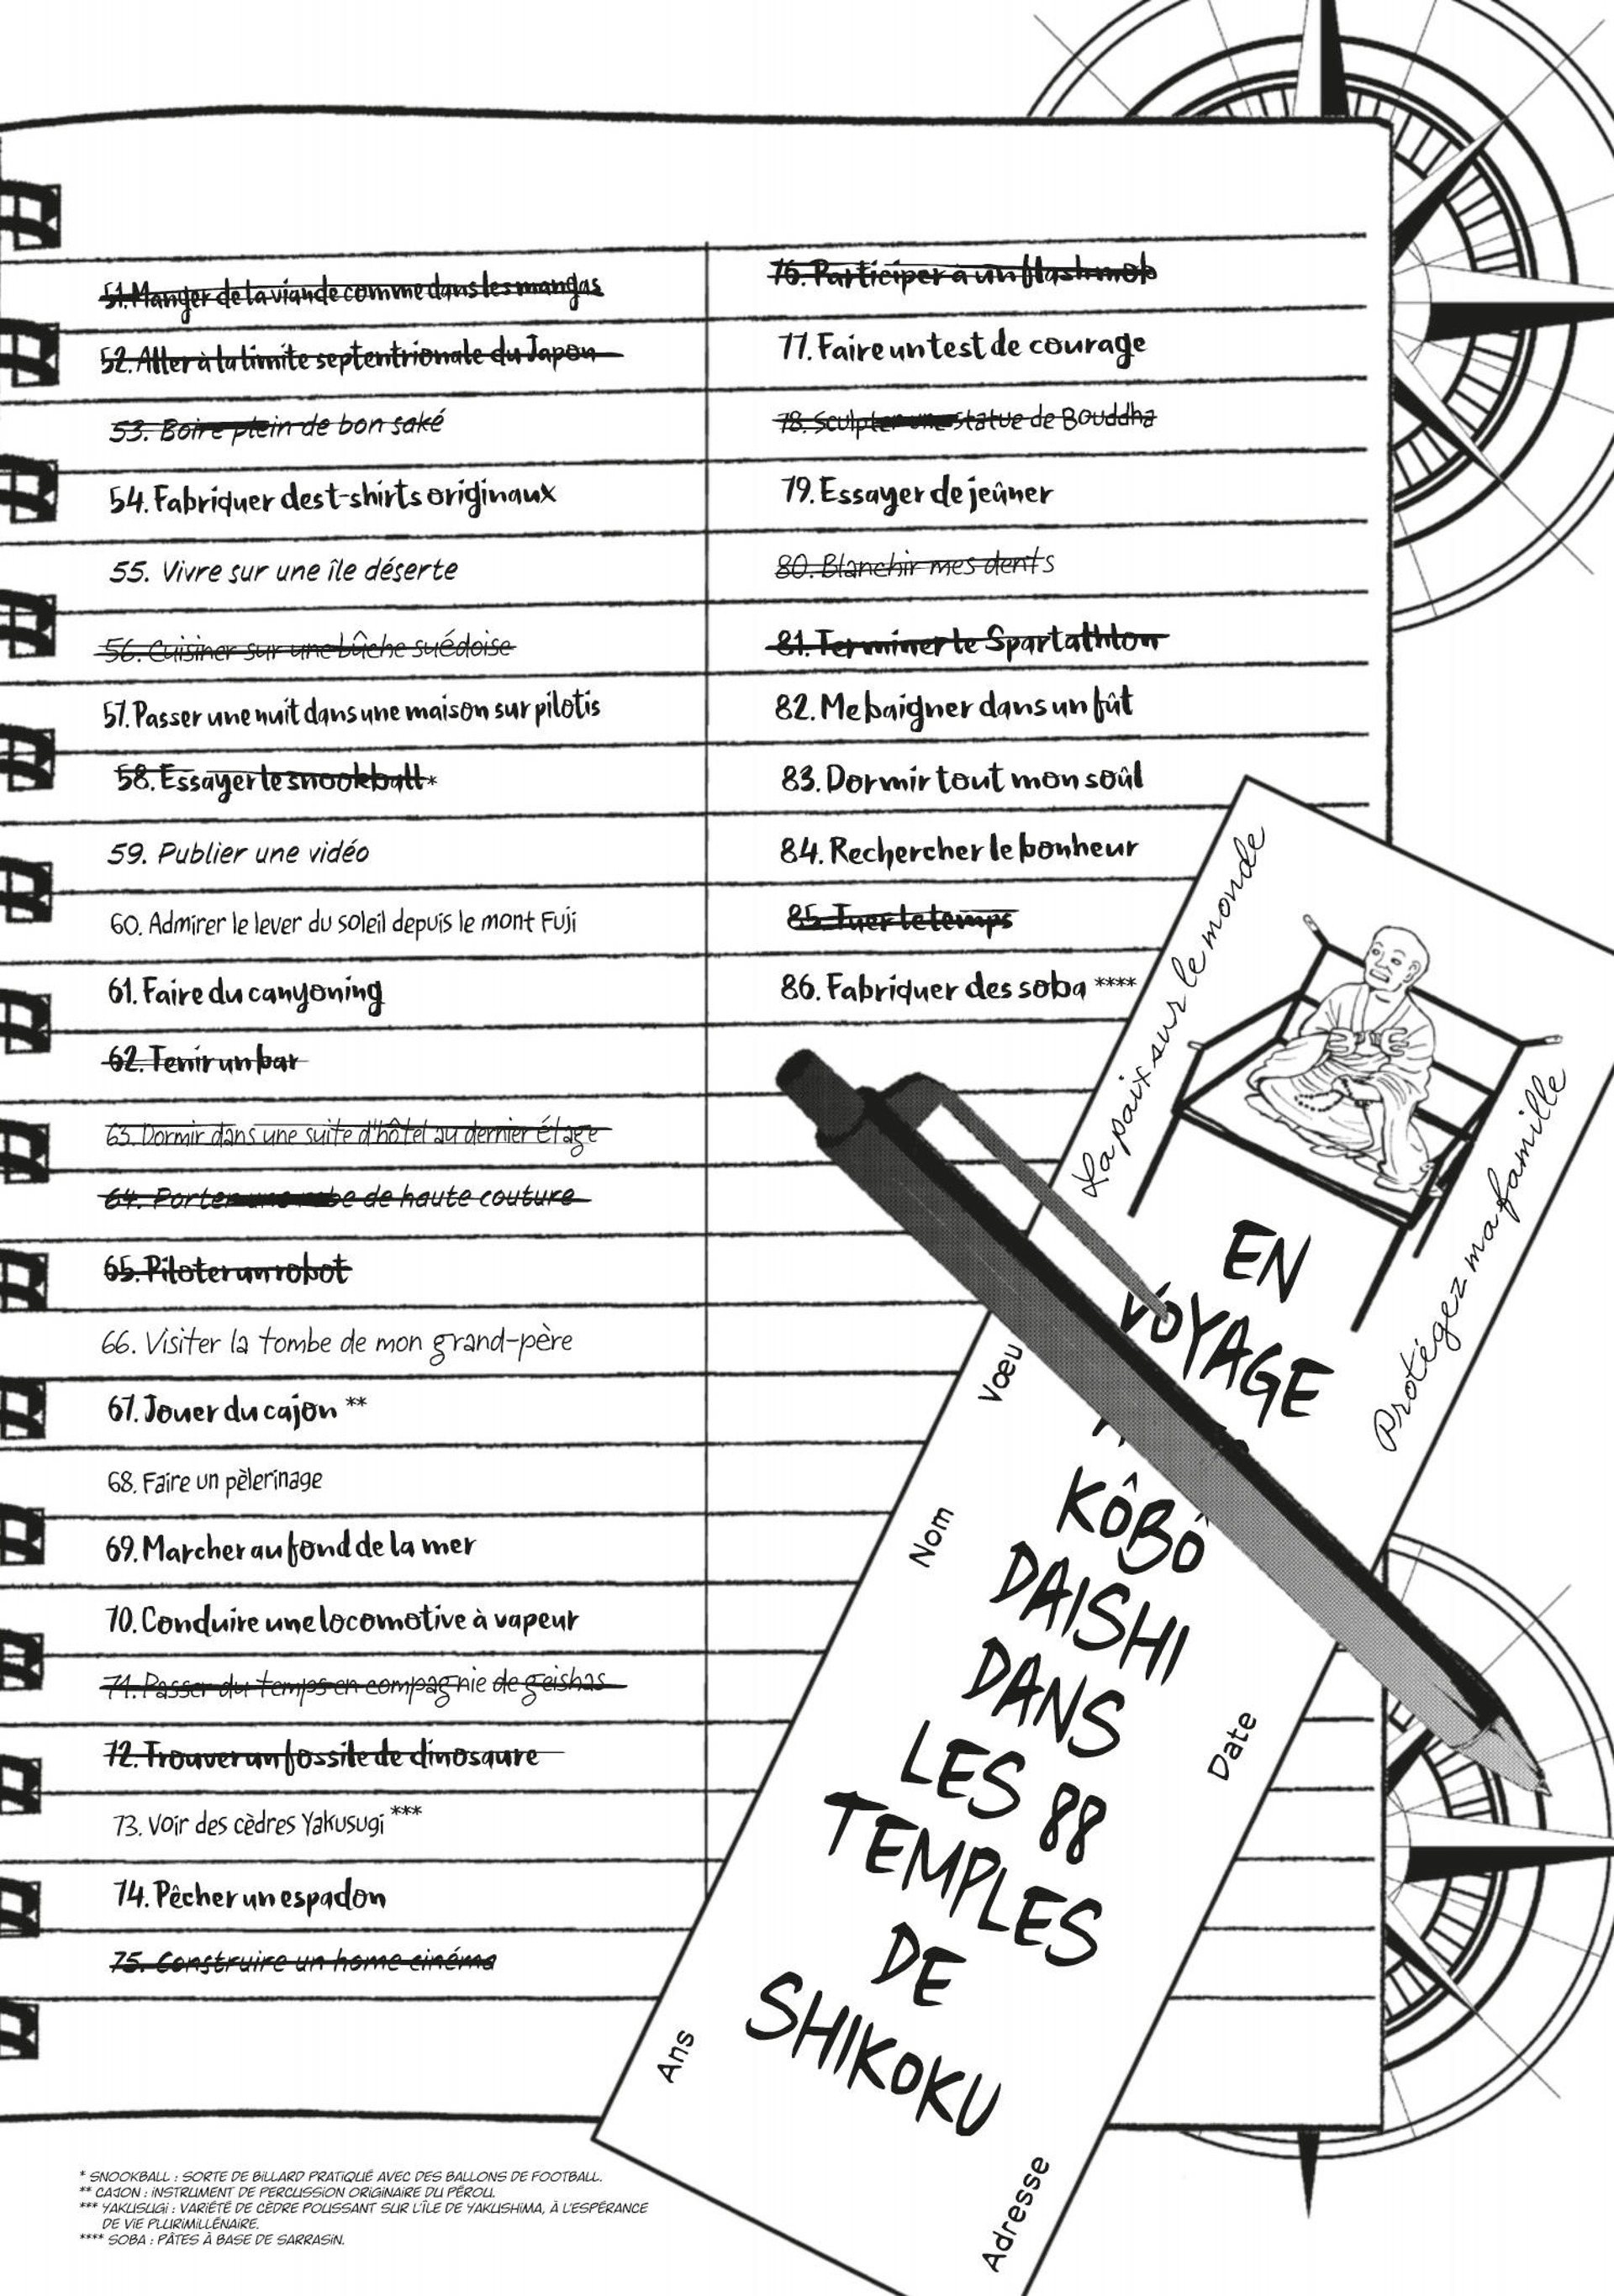 51. Manger de la viande comme dans les mangas
52. Aller à la limite septentrionale du Japon
53. Boire plein de bon saké
54. Fabriquer des t-shirts originaux
55. Vivre sur une île déserte
56. Cuisiner sur une bûche suédoise
57. Passer une nuit dans une maison sur pilotis
58. Essayer le snookball*
59. Publier une vidéo
60. Admirer le lever du soleil depuis le mont Fuji
61. Faire du canyoning
62. Tenir un bar
63. Dormir dans une suite d'hôtel au dernier étage
64. Porter une robe de haute couture
65. Piloter un robot
66. Visiter la tombe de mon grand-père
67. Jouer du cajon **
68. Faire un pèlerinage
69. Marcher au fond de la mer
70. Conduire une locomotive à vapeur
71. Passer du temps en compagnie de geishas
72. Trouver un fossile de dinosaure
73. Voir des cèdres Yakusugi ***
74. Pêcher un espadon
75. Construire un home cinéma
76. Participer à un flashmob
77. Faire un test de courage
78. Sculpter une statue de Bouddha
79. Essayer de jeûner
80. Blanchir mes dents
81. Terminer le Spartathlon
82. Me baigner dans un fût
83. Dormir tout mon soûl
84. Rechercher le bonheur
85. Tuer le temps
86. Fabriquer des soba ****
La paix sur le monde
Protégez ma famille
EN
VOYAGE
KÔBÔ
DAISHI
DANS
LES 88
TEMPLES
DE
SHIKOKU
Vœu
Nom
Ans
Date
Adresse
* SNOOKBALL : SORTE DE BILLARD PRATIQUÉ AVEC DES BALLONS DE FOOTBALL.
** CAJON : INSTRUMENT DE PERCUSSION ORIGINAIRE DU PÉROU.
*** YAKUSUGI : VARIÉTÉ DE CÈDRE POUSSANT SUR L'ÎLE DE YAKUSHIMA, À L'ESPÉRANCE
DE VIE PLURIMILLÉNAIRE.
**** SOBA : PÂTES À BASE DE SARRASIN.